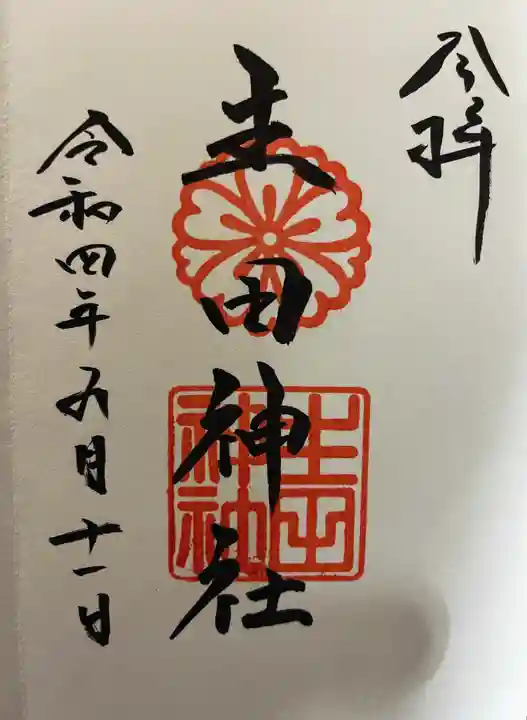 奉拝
土田神社
令和四年五月十一日
土田
神社